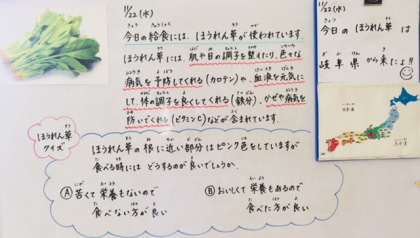 11/22(水)
今日の給食には、ほうれん草が使われています。
ほうれん草には、肌や目の調子を整えたり、色々な
病気を予防してくれる(カロテン)や、血液を元気に
して、体の調子を良くしてくれる(鉄分)、かぜや病気を
防いでくれる(ビタミンC)などが含まれています。
11/22(水)
今日のほうれん草は
岐阜県から来たよ!!
ほうれん草
クイズ
ほうれん草の根に近い部分はピンク色をしていますが
食べる時にはどうするのが良いでしょうか。
Ⓐ 苦くて栄養もないので
食べない方が良い
Ⓑ おいしくて栄養もあるので
食べた方が良い